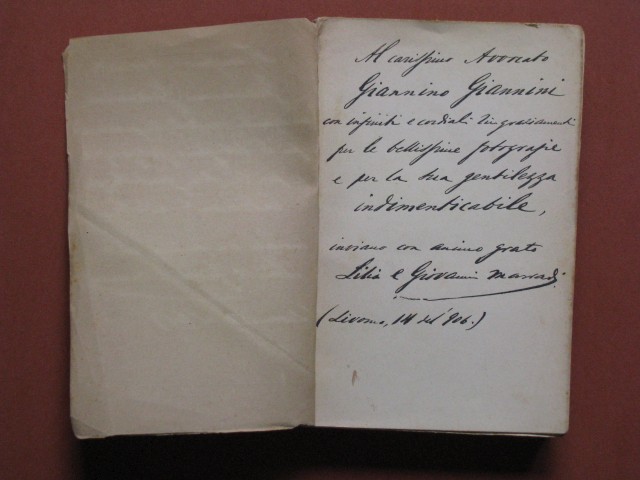 Al carissimo Avvocato
Giannino Giannini
con infiniti e cordiali ringraziamenti
per le bellissime fotografie
e per la sua gentilezza
indimenticabile,
inviano con animo grato
Lilia e Giovanni Marradi
(Livorno, 14 del 906.)